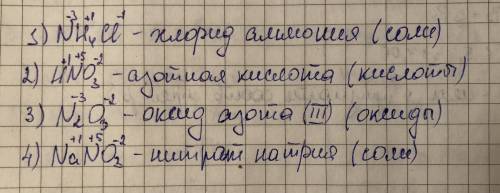 1) N⁻³H₄⁺¹Cl⁻¹ - хлорид аммония (соли)
2) H⁺¹N⁺⁵O₃⁻² - азотная кислота (кислоты)
3) N₂⁻³O₃⁻² - оксид азота (III) (оксиды)
4) Na⁺¹N⁺⁵O₃⁻² - нитрат натрия (соли)